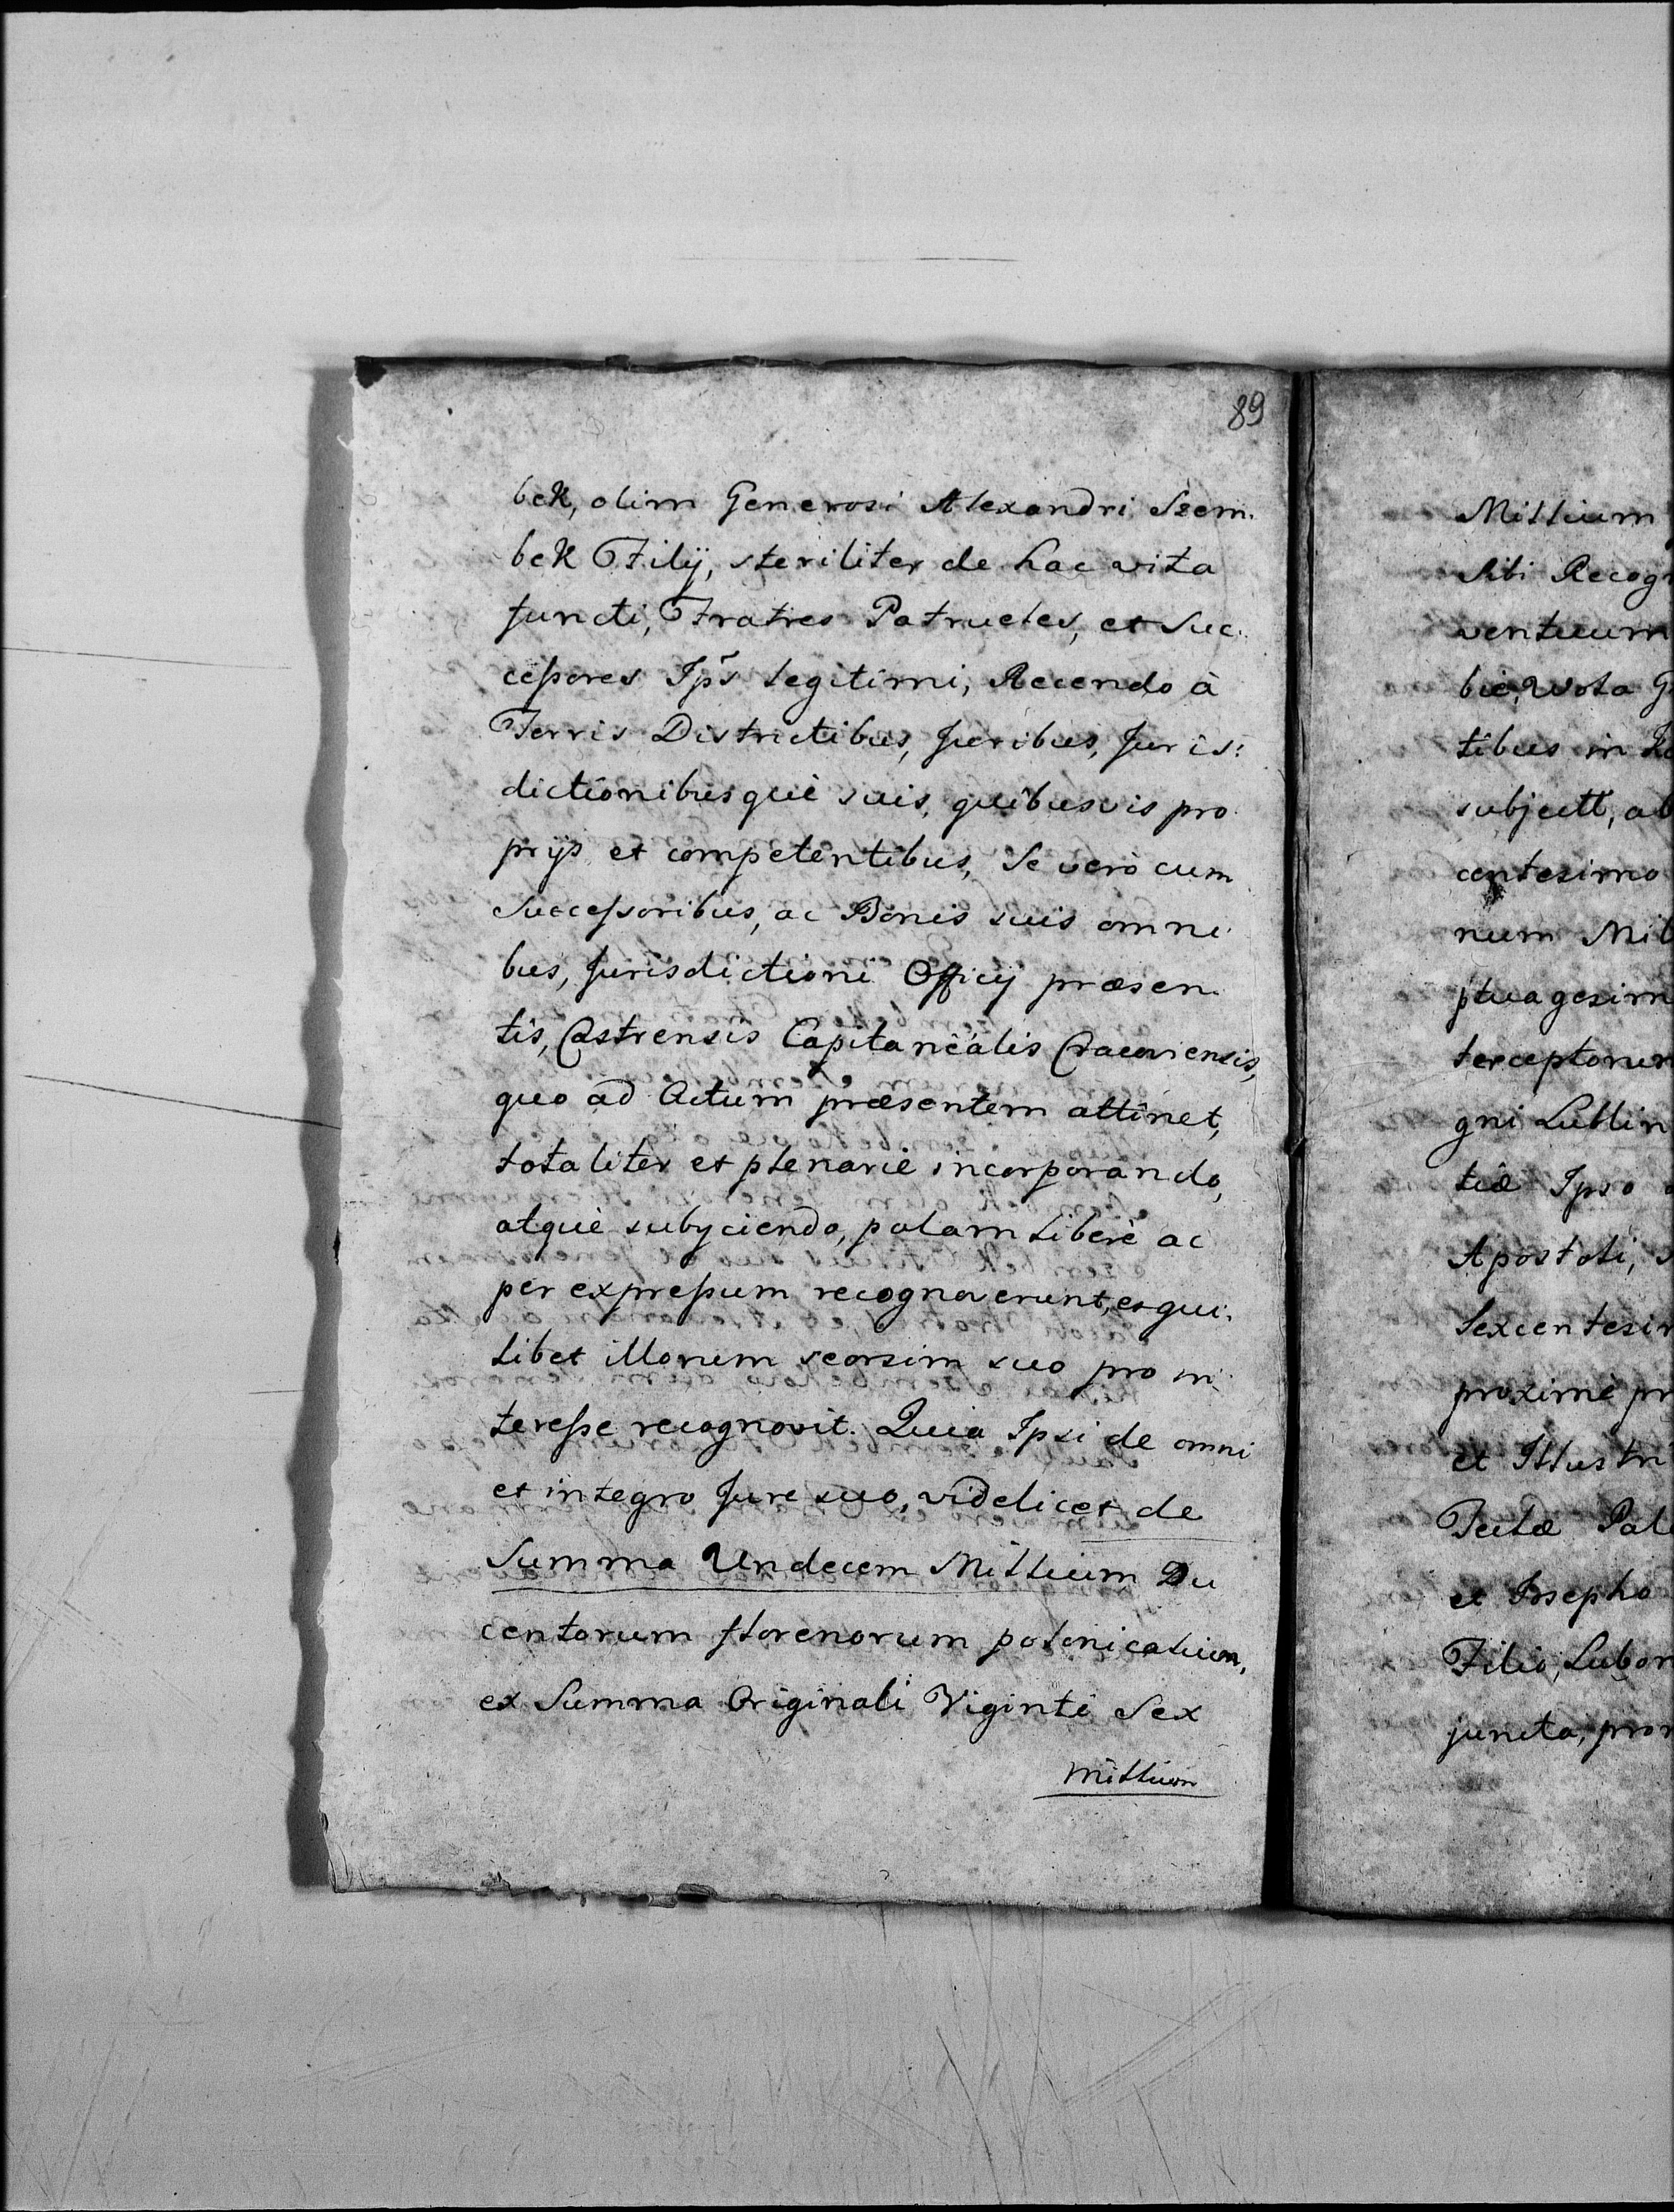 89
bek, olim Generosi Alexandri Szem.
bek Filij, steriliter de hac vita
functi, Fratres Patrueles, et Suc.
ceßores Ip̃s legitimi, Recendo à
Terris Districtibus, Juribus, Juris:
dictionibusquè suis, quibusvis pro
prijs et competentibus, Se verò cum
Succeßoribus, ac Bonis suis omni
bus, Jurisdictioni Officij præsen.
tis, Castrensis Capitanealis Cracoviensis,
quo ad Actum præsentem attinet,
totaliter et plenariè incorporando,
atquè subijciendo, palam liberè ac
per expreßum recognoverunt, et qui.
libet illorum seorsim suo pro in
tereße recognovit. Quia Ipsi de omni
et integro Jure suo, videlicet de
Summa Undecem Millium Du
centorum florenorum polonicalium,
ex Summa Originali Viginti Sex
Millium
Millium
Sibi Recog
ventuum
biè, Wola G
tibus in
subjectt, ab
centesimo
num Mil
ptuagesim
terceptorum
gni Lublin
tiæ Ipso
Apostoli,
Sexcentesi
proximè pr
et Illustri
Teclæ Pal
et Josepho
Filio, Lubor
juncta, pro